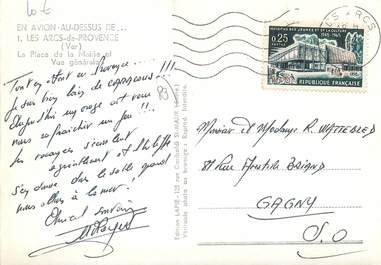 10 €
EN AVION AU-DESSUS DE...
1. LES ARCS-de-PROVENCE
(Var)
La Place de la Mairie et
Vue générale
Tout en étant en Provence
je suis bien loin de
Aujourd'hui un orage est venu
nous rafraîchir un peu !!
les vacances s'écoulent
agréablement
dans le sable quand
nous allons à la mer !
Amical souvenir
83
Edition LAPIE - 125 rue Garibaldi St-MAUR (Seine)
Véritable photo au bromure - Reprod. Interdite.
LES ARCS
MAISONS DES JEUNES ET DE LA CULTURE
1945-1965
0,25
POSTES
REPUBLIQUE FRANÇAISE
Monsieur et Madame R WATTEBLED
Rue Aristide BRIAND
GAGNY
S.O